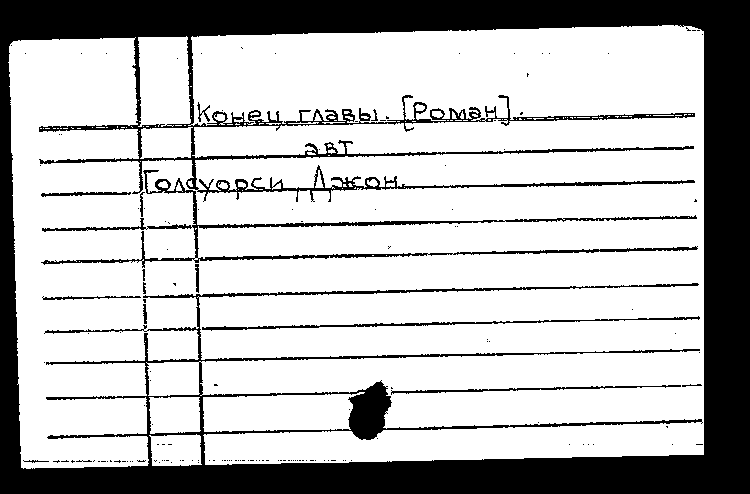 Конец главы. [Роман].
авт
Голсуорси, Джон.